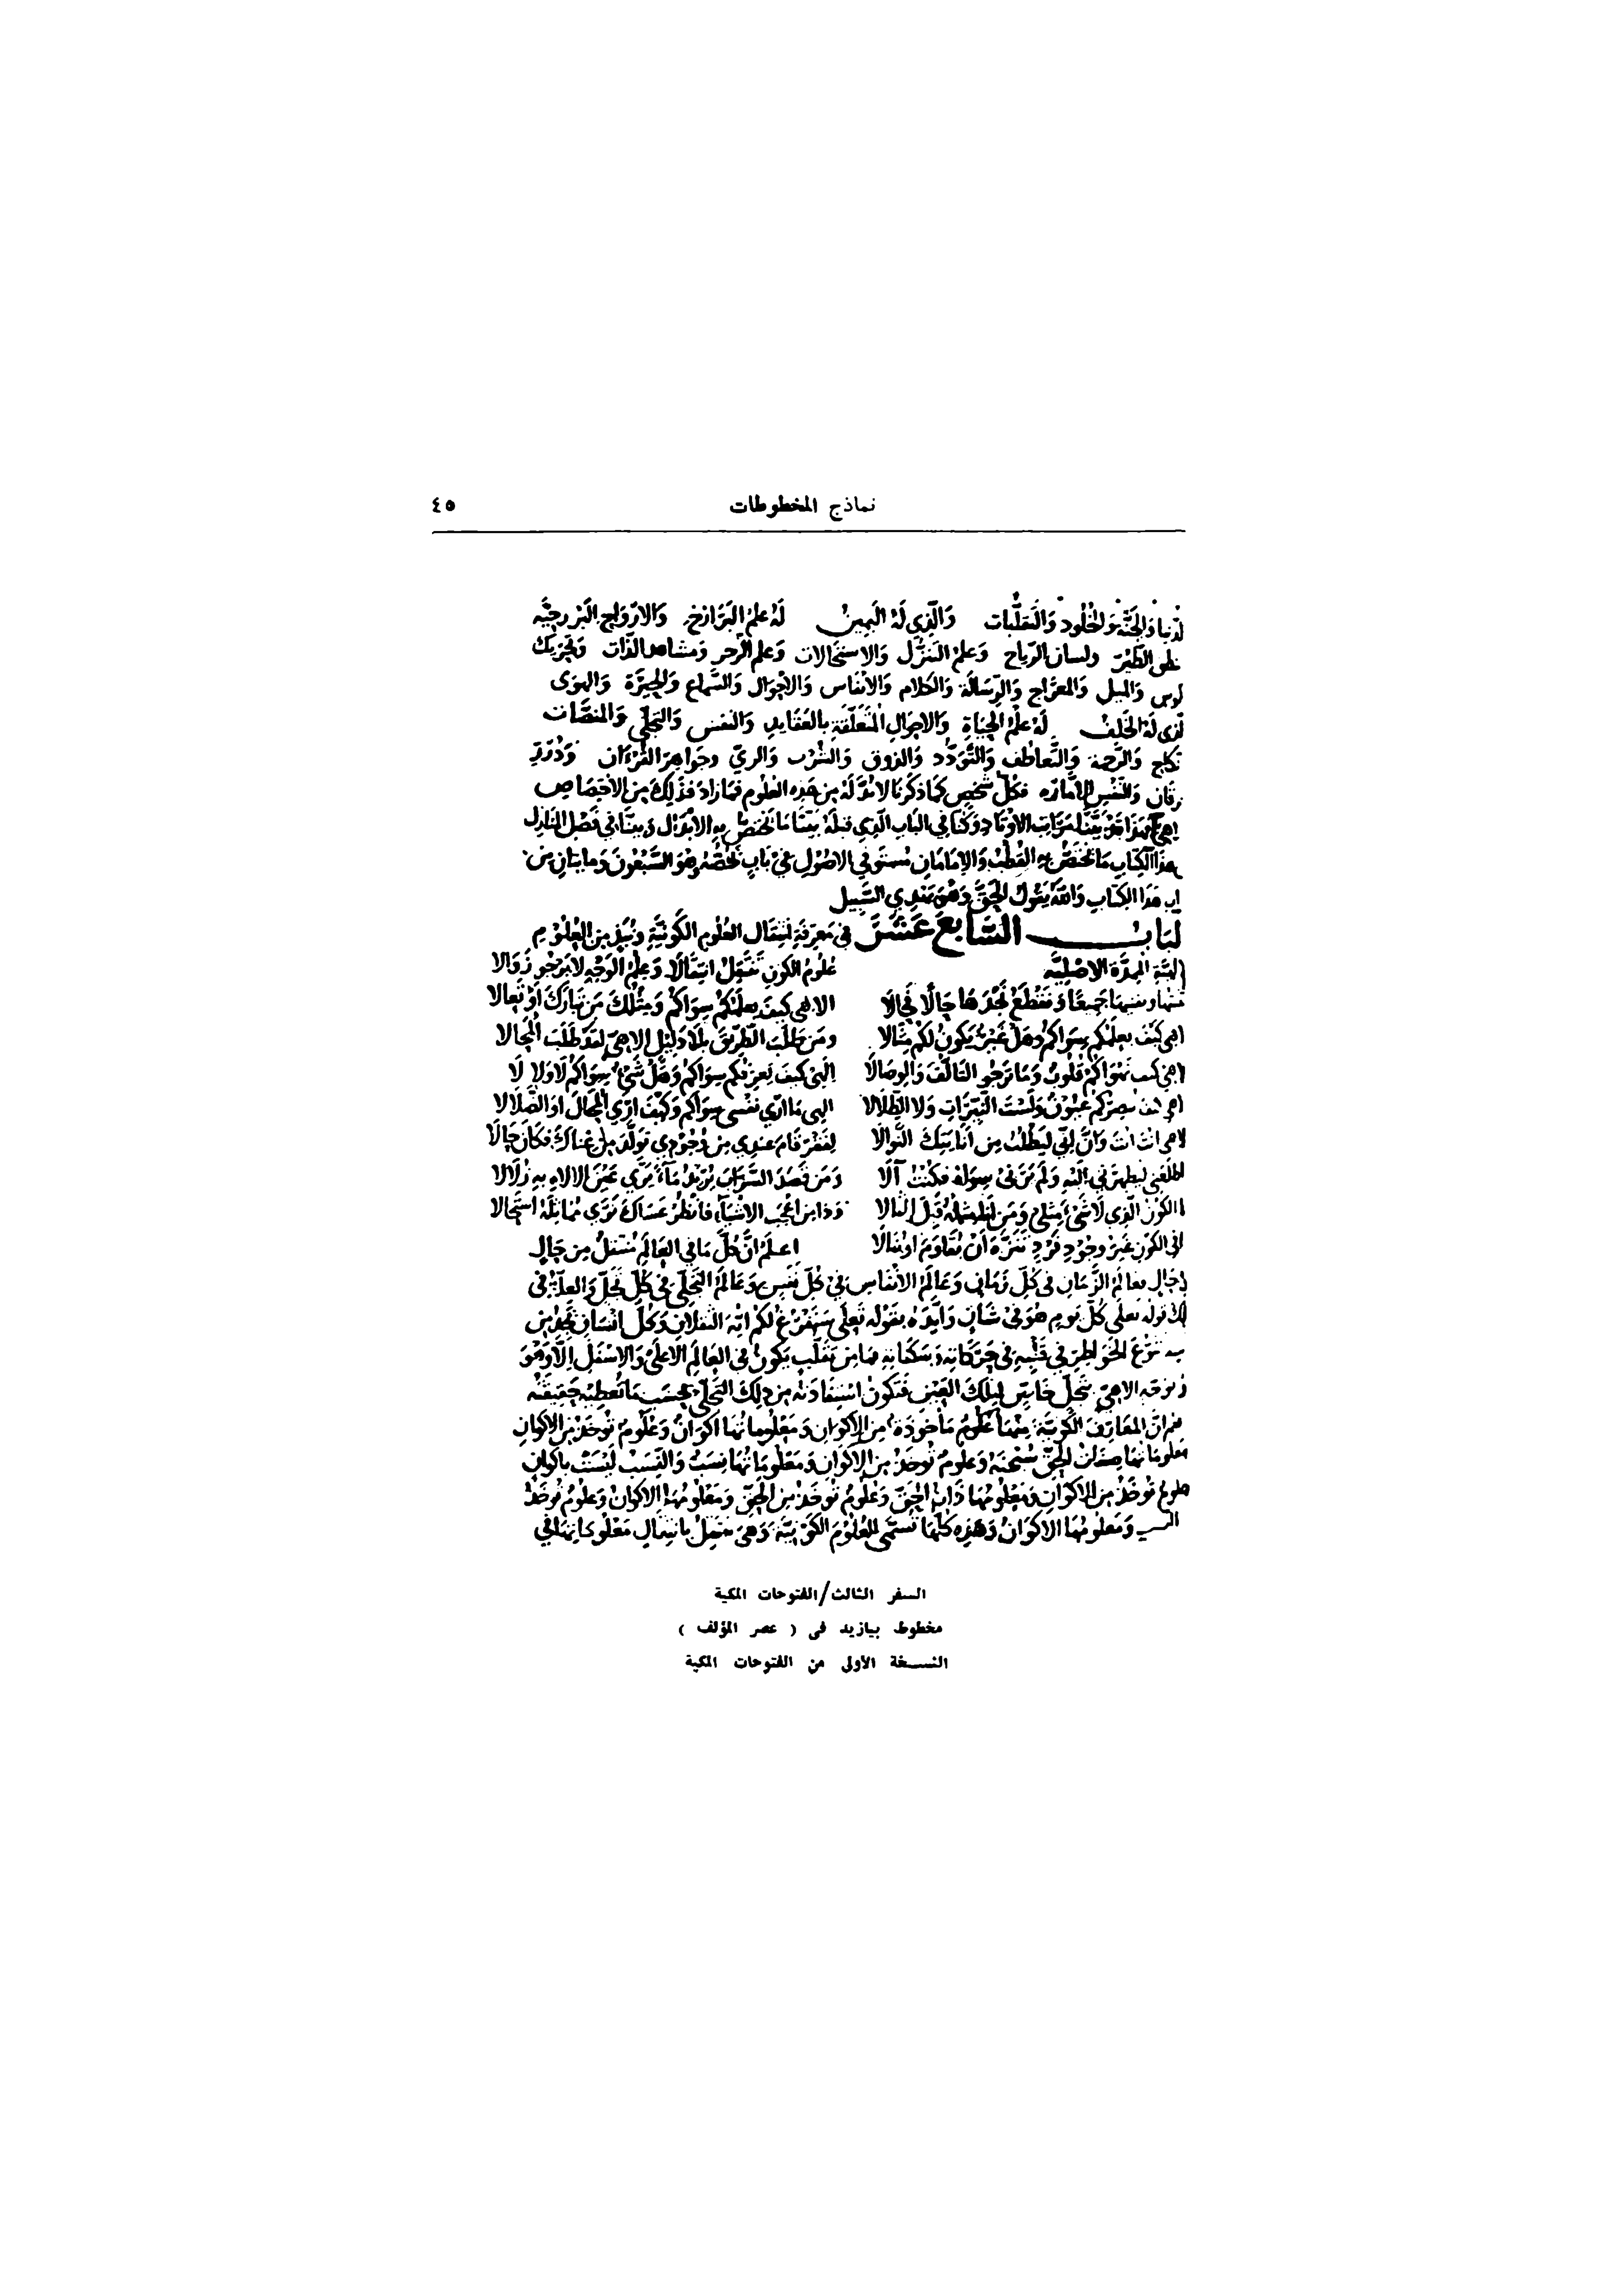 نماذج المخطوطات ٤٥
والجنة والخلود والتقلبات والذي له اليمين له علم البرازخ والارواح البرزخيه
الطير ولسان الرياح وعلم التنزل والاستحالات وعلم الزجر ومشاهد الذات وتحريك
والميل والمعراج والرسالة والكلام والانفاس والاحوال والسماع والحيرة والهوى
له الخلف له علم الحياة والاحوال المتعلقة بالعقايد والنفس والتجلي والمنصات
والرحمة والتعاطف والتودد والذوق والشرب والري وجواهر القرءان ودرر
والنفس الامارة فكل شخص كما ذكرنا لا بد له من هذه العلوم فما زاد فذلك من الاختصاص
فهذا قد بينا مراتب الاوتاد وكنا في الباب الذي قبله بينا ما يختص به الابدال وبينا في فصل المنازل
هذا الكتاب ما يختص به القطب والإمامان مستوفى الاصول في باب يخصه وهو السبعون ومايتان من
هذا الكتاب والله يقول الحق وهو يهدي السبيل
لباب السابع عشر في معرفة انتقال العلوم الكونية ونبذ من العلوم
الممدة الاصلية علوم الكون تنتقل انتقالا وعلم الوجه لا يرجو زوالا
جميعا ونقطع نجدها حالا فحالا الاهي كيف يعلمكم سواكم ومثلك من تبارك او تعالا
كيف يعلمكم سواكم وهل غير يكون لكم مثالا ومن طلب الطريق بلا دليل الاهي لقد طلب المحالا
كيف تهواكم قلوب وما ترجو التالف والوصالا الهي كيف يعرفكم سواكم وهل شيء سواكم لا ولا لا
تبصركم عيون ولست النيرات ولا الظلالا الهي ما ارى نفسي سواكم وكيف ارى المحال او الضلالا
انت انت وان اني ليطلب من انايتك النوالا لفقر قام عندي من وجودي تولد من غناك فكان حالا
ليظهرني اليه ولم يرني سواه فكنت آلا ومن قصد السراب يريد ماء يرى عين الالاه به زلالا
الكون الذي لا شيء مثلي ومن انا مثله قبل المثالا وذا من اعجب الاشياء فانظر عساك ترى مماثله استحالا
في الكون غير وجود فرد تنزه ان يقاوم او ينالا اعلم ان كل ما في العالم منتقل من حال
حال فعالم الزمان في كل زمان وعالم الانفاس في كل نفس وعالم التجلي في كل تجل والعلة في
قوله تعلى كل يوم هو في شان وايده بقوله تعلى سنفرغ لكم ايه الثقلان وكل انسان يجد من
تنوع الخواطر في قلبه في حركاته وسكناته فما من تقلب يكون في العالم الاعلى والاسفل الا وهو
الاهي بتجل خاص لتلك العين فتكون استفادته من ذلك التجلي بحسب ما تعطيه حقيقته
ان المعارف الكونية منها علوم ماخوذة من الاكوان ومعلوماتها اكوان وعلوم توخذ من الاكوان
معلوماتها الحق سبحنه وعلوم توخذ من الاكوان ومعلوماتها نسب والنسب ليست باكوان
علوم توخذ من الاكوان ومعلومها ذات الحق وعلوم توخذ من الحق ومعلومها الاكوان وعلوم توخذ
ومعلومها الاكوان وهذه كلها تسمى العلوم الكونية وهي تنتقل بانتقال معلوماتها في
السفر الثالث/الفتوحات المكية
مخطوط بيازيد في ( عصر المؤلف )
النسخة الأولى من الفتوحات المكية